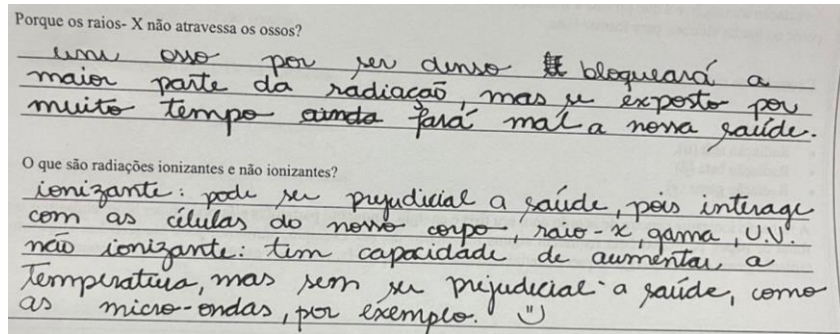 Porque os raios- X não atravessa os ossos?
um osso por ser denso bloqueará a
maior parte da radiação, mas se exposto por
muito tempo ainda fará mal a nossa saúde.
O que são radiações ionizantes e não ionizantes?
ionizante: pode ser prejudicial a saúde, pois interage
com as células do nosso corpo, raio-x, gama, U.V.
não ionizante: tem capacidade de aumentar a
temperatura, mas sem ser prejudicial a saúde, como
as micro-ondas, por exemplo.